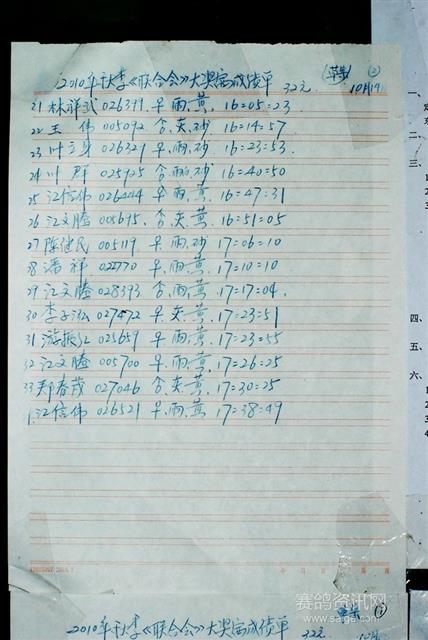 2010年秋季《联合会》大奖赛成绩单 32元 ②
10月19日
21 林祥武 026399 早雨.黄. 16:05:23
22 王 伟 005092 舍.灰.砂 16:14:57
23 叶立身 026329 早.雨.砂 16:23:53
24 叶 群 025925 舍.雨.砂 16:40:50
25 江信伟 026444 早.雨.黄. 16:47:31
26 江文腾 005695. 舍.灰.黄 16:51:05
27 陈健民 005119 早.雨.砂 17:06:10
28 潘 祥 021770 早.雨.黄. 17:10:10
29 江文腾 028393 舍.雨.黄 17:17:04.
30 李子泓 027472 早.灰.黄. 17:23:51
31 游振江 025659 早.雨.黄. 17:23:55
32 江文腾 005700 早.雨.黄. 17:26:25
33 郑春茂 027046 舍.灰.黄. 17:30:25
江信伟 026521 早.雨.黄 17:38:49
一、
二、
三、
四、
五、
六、
赛鸽资讯网
www.saige.com
2010年秋季《联合会》大奖赛成绩单 32元 ①